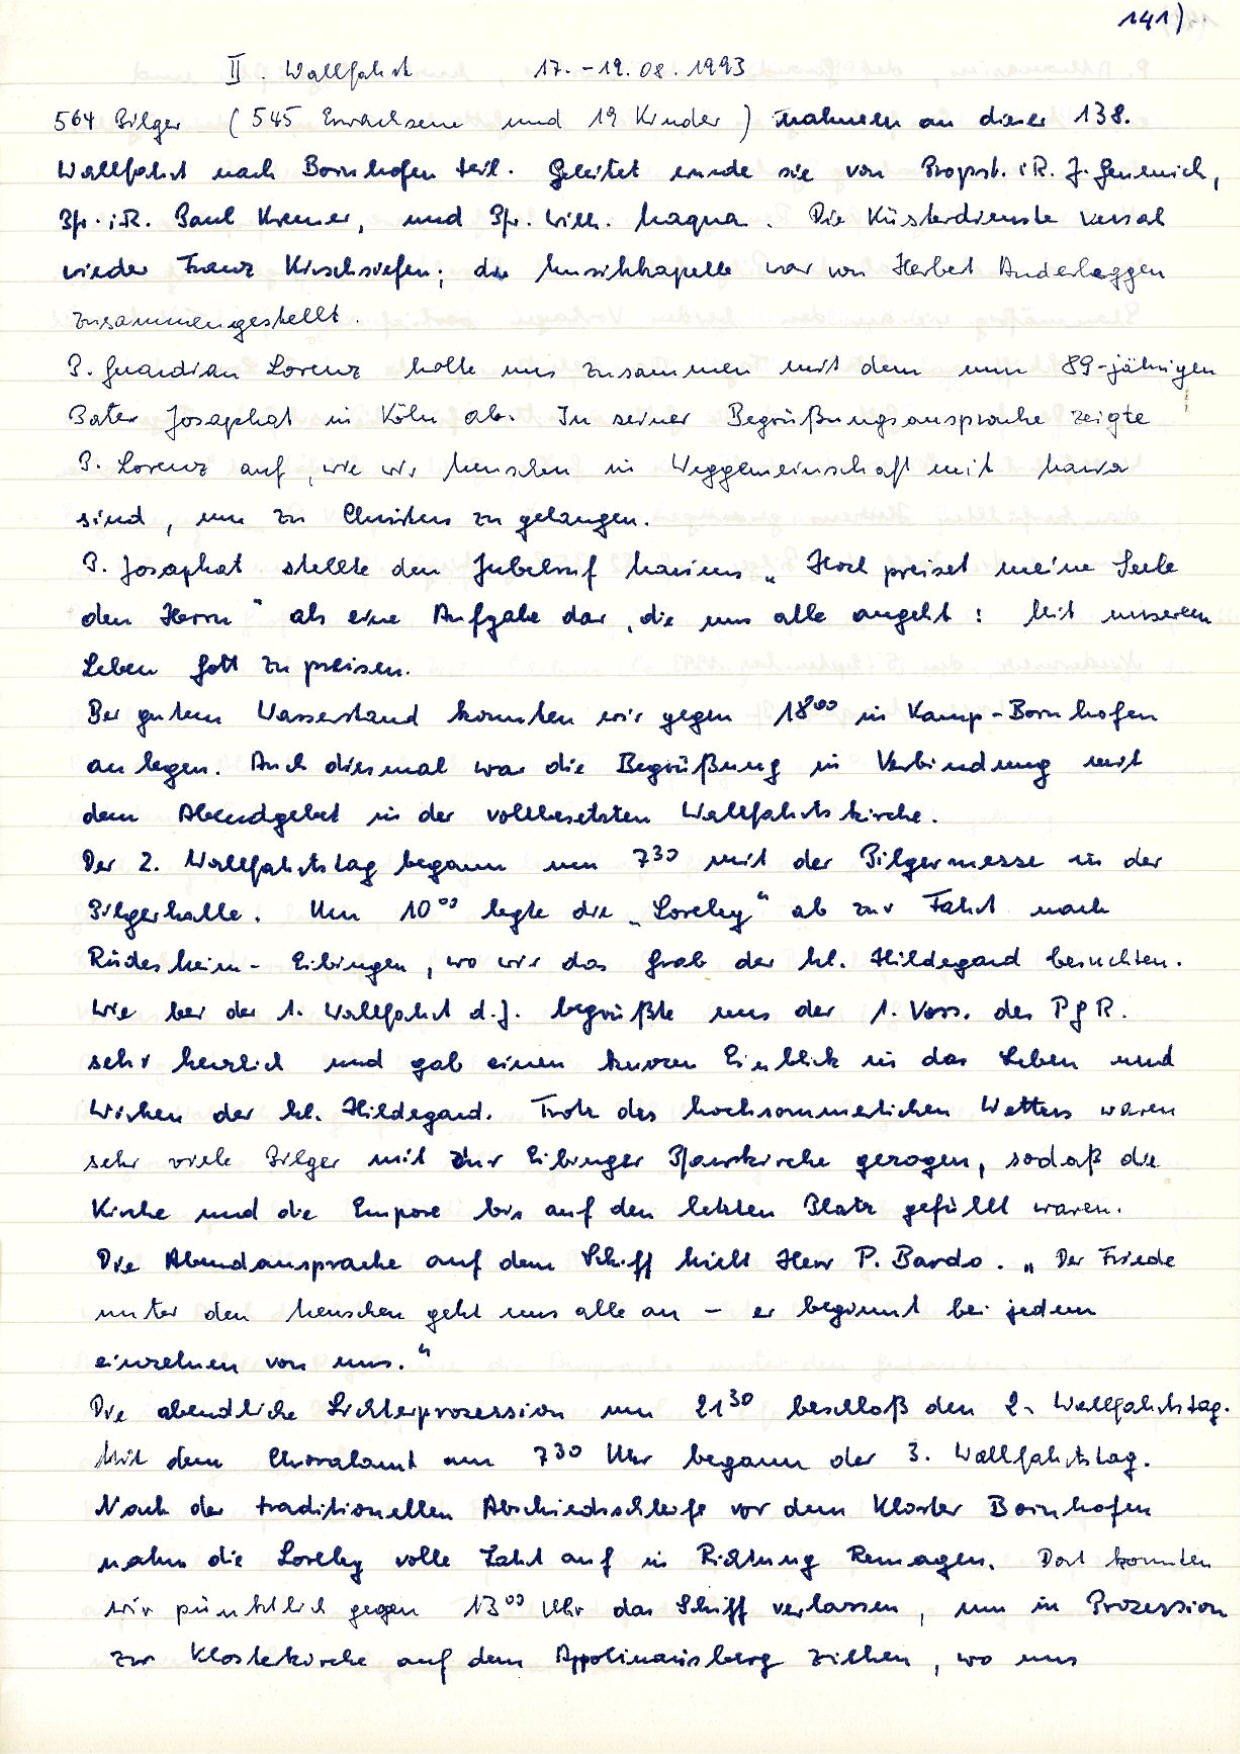 141)
II. Wallfahrt 17.-19.08.1993
564 Pilger (545 Erwachsene und 19 Kinder) nahmen an dieser 138.
Wallfahrt nach Bornhofen teil. Geleitet wurde sie von Propst. i.R. J.
Pfr. i.R. Paul Kremer, und Pfr. Wilh. Magna. Die Küsterdienste versah
wieder Franz Kirschsiefen; die Musikkapelle war von Herbert Anderheggen
zusammengestellt.
P. Guardian Lorenz holte uns zusammen mit dem nun 89-jährigen
Pater Josaphat in Köln ab. In seiner Begrüßungsansprache zeigte
P. Lorenz auf, wie wir Menschen in Weggemeinschaft mit Maria
sind, um zu Christus zu gelangen.
P. Josaphat stellte den Jubelruf Mariens „Hoch preiset meine Seele
den Herrn" als eine Aufgabe dar, die uns alle angeht: Mit unserem
Leben Gott zu preisen.
Bei gutem Wasserstand konnten wir gegen 18 00 in Kamp-Bornhofen
anlegen. Auch diesmal war die Begrüßung in Verbindung mit
dem Abendgebet in der vollbesetzten Wallfahrtskirche.
Der 2. Wallfahrtstag begann um 7 30 mit der Pilgermesse in der
Pilgerhalle. Um 10 00 legte die „Loreley" ab zur Fahrt nach
Rüdesheim-Eibingen, wo wir das Grab der hl. Hildegard besuchten.
Wie bei der 1. Wallfahrt d.J. begrüßte uns der 1. Vors. des PGR.
sehr herzlich und gab einen kurzen Einblick in das Leben und
Wirken der hl. Hildegard. Trotz des hochsommerlichen Wetters waren
sehr viele Pilger mit zur Eibinger Pfarrkirche gezogen, sodaß die
Kirche und die Empore bis auf den letzten Platz gefüllt waren.
Die Abendansprache auf dem Schiff hielt Herr P. Bardo. „Der Friede
unter den Menschen geht uns alle an – er beginnt bei jedem
einzelnen von uns."
Die abendliche Lichterprozession um 21 30 beschloß den 2. Wallfahrtstag.
Mit dem Choralamt um 7 30 Uhr begann der 3. Wallfahrtstag.
Nach der traditionellen Abschiedsschleife vor dem Kloster Bornhofen
nahm die Loreley volle Fahrt auf in Richtung Remagen. Dort konnten
wir pünktlich gegen 13 00 Uhr das Schiff verlassen, um in Prozession
zur Klosterkirche auf dem Appolinarisberg ziehen, wo uns